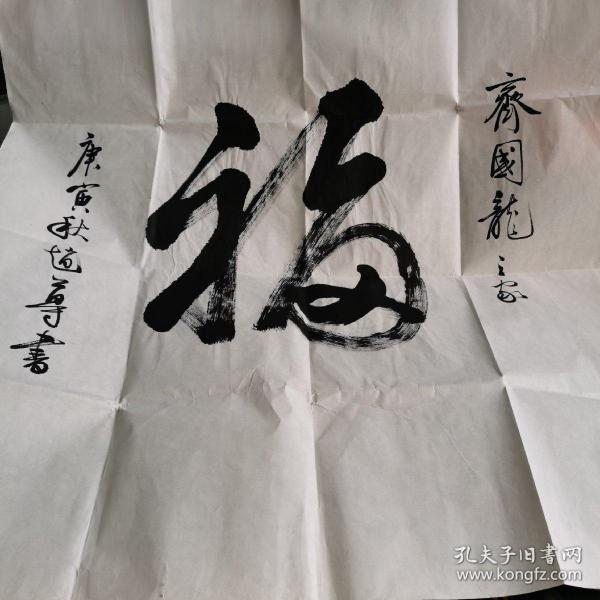 齊國龍之家
福
庚寅秋尊書
孔夫子旧書网
www.kongfz.com